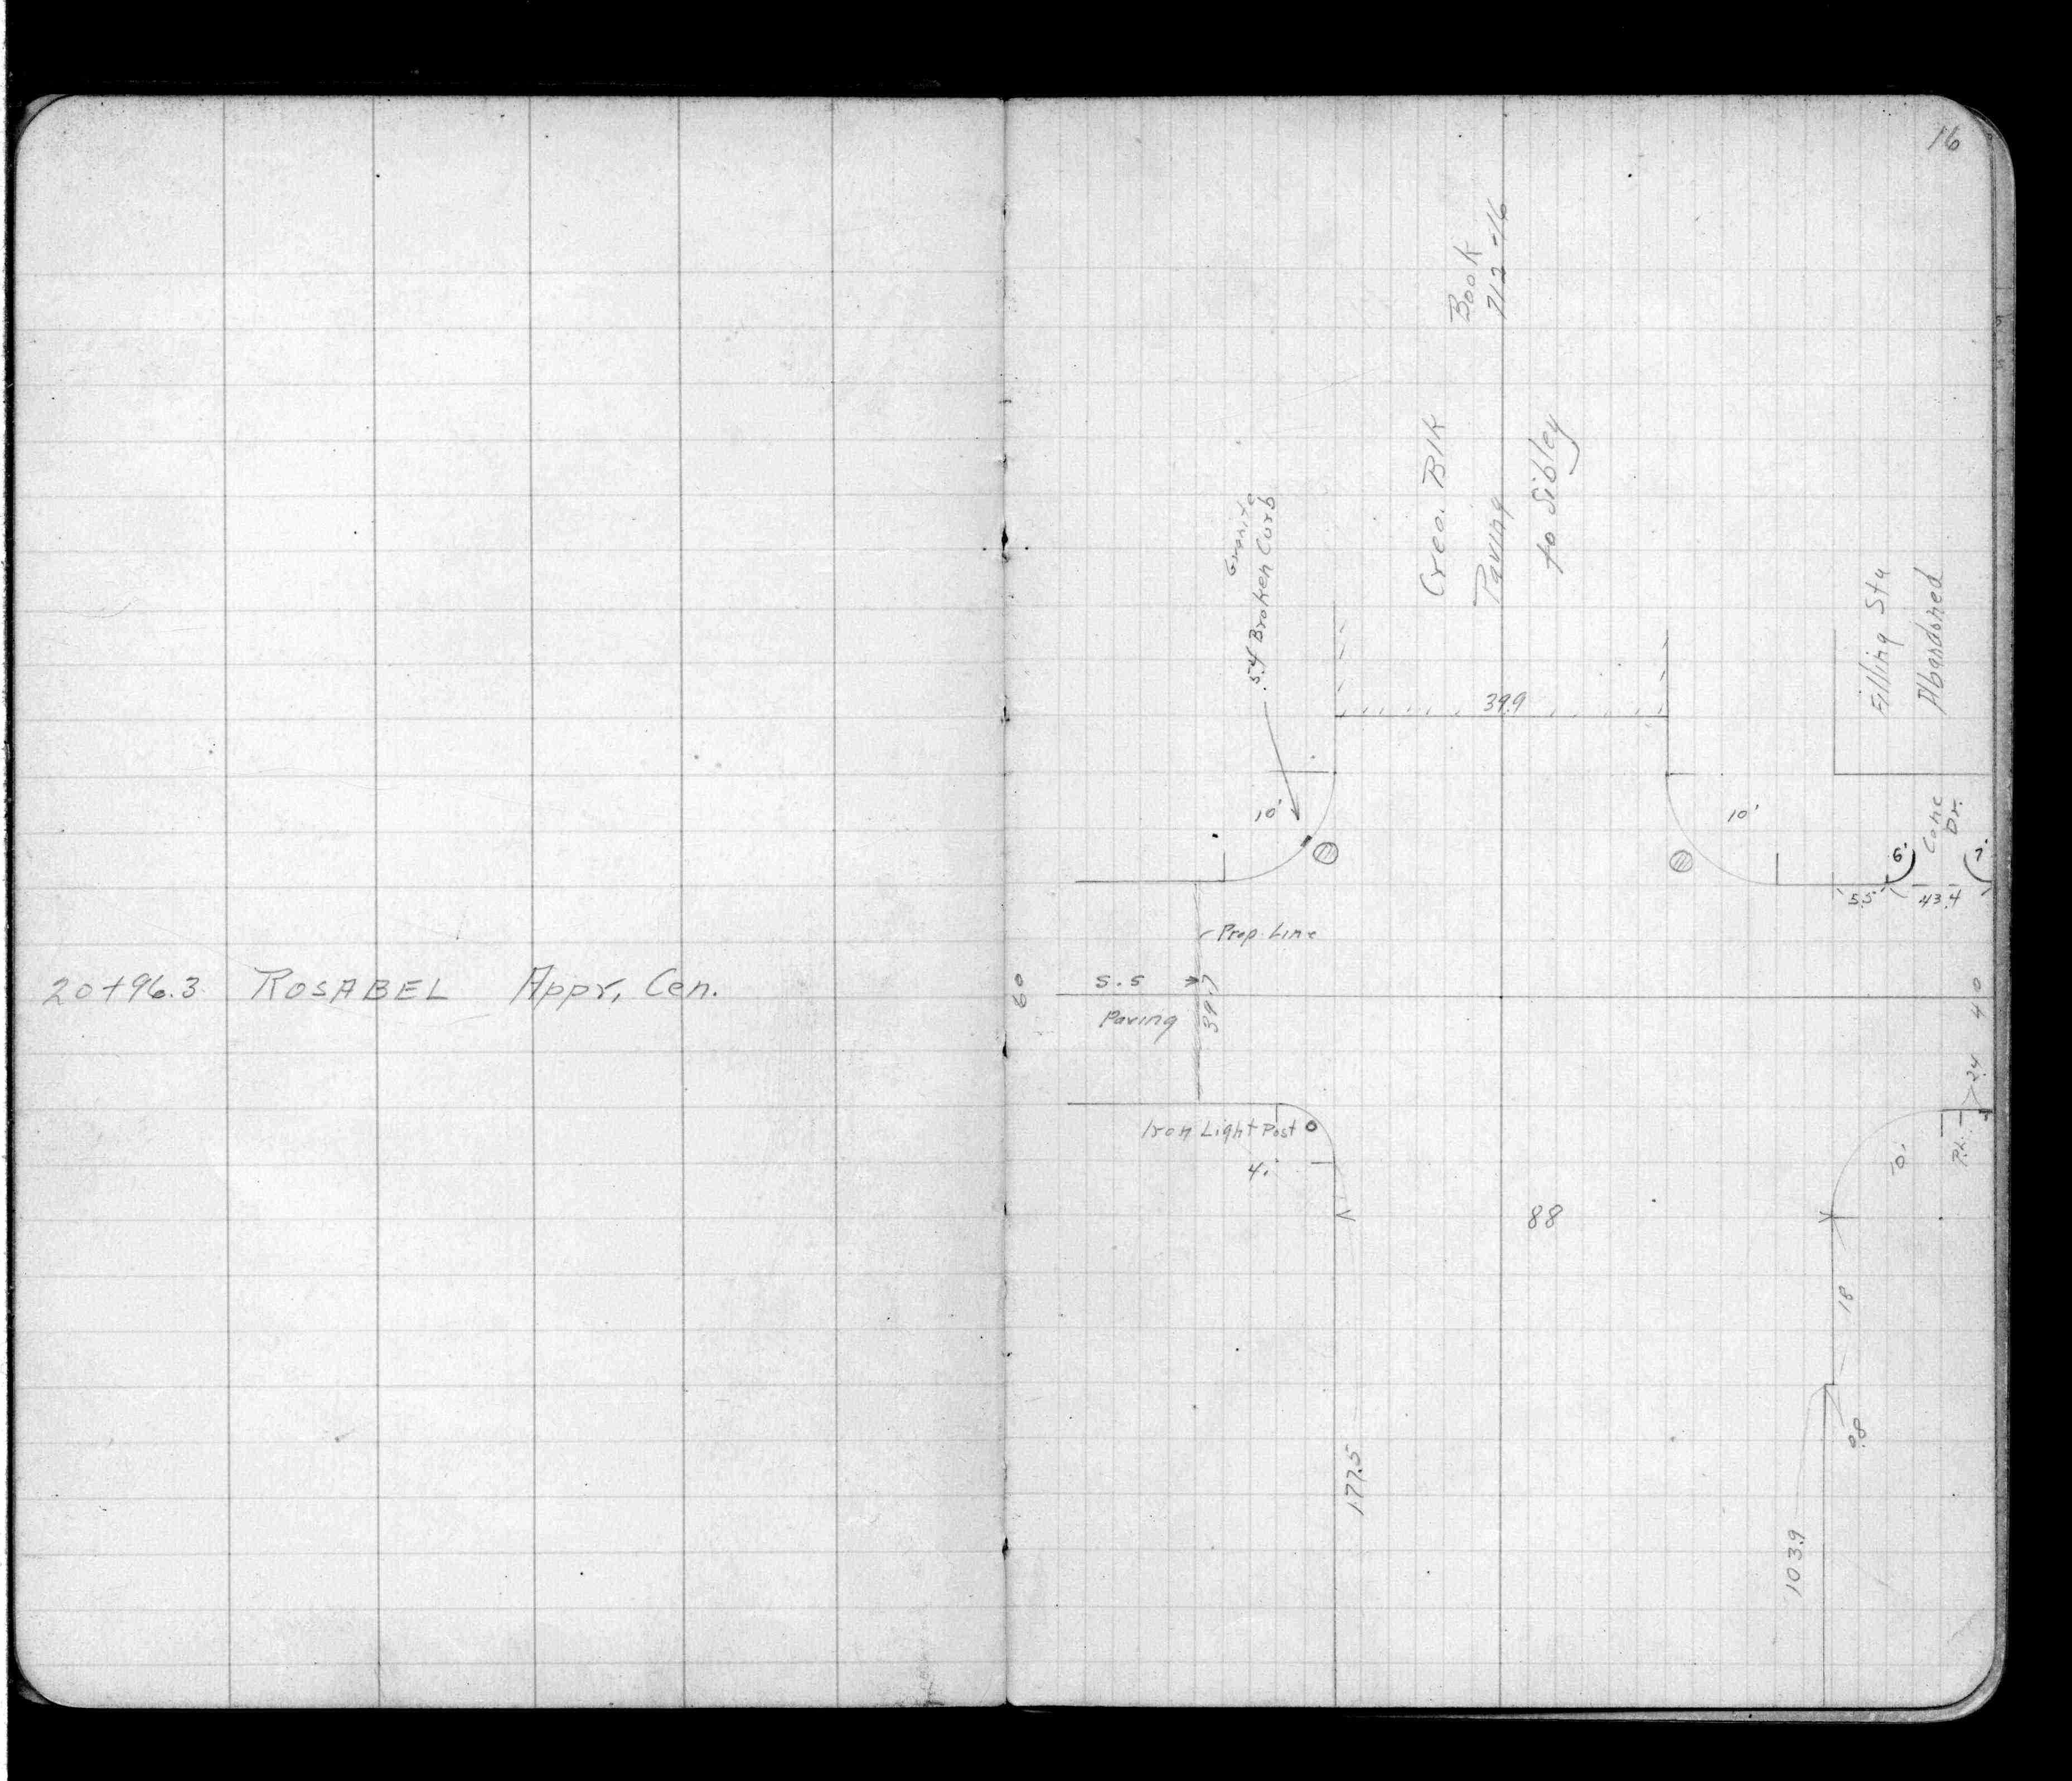 20+96.3 ROSABEL Appr. Cen.
16
Book
712-16
Creo. Blk
Paving
to Sibley
Granite
5.4 Broken Curb
Filling Sta
Abandoned
39.9
10'
10'
Conc
Dr.
6'
7'
5.5
43.4
Prop. Line
60
S.S
Paving
39.7
40
24
Iron Light Post
4'
10'
88
18
0.8
177.5
103.9